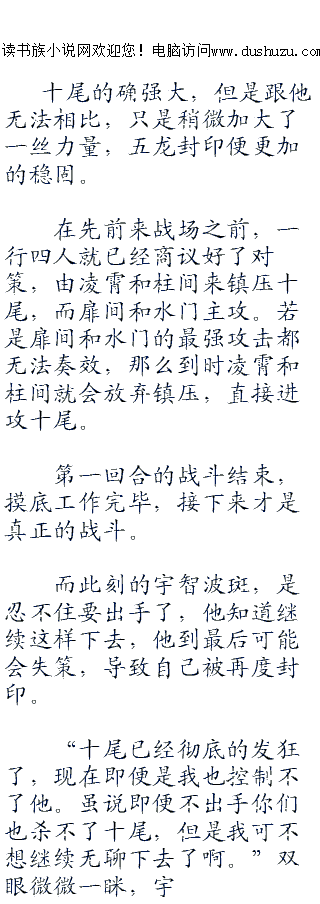 读书族小说网欢迎您！电脑访问www.dushuzu.com
十尾的确强大，但是跟他
无法相比，只是稍微加大了
一丝力量，五龙封印便更加
的稳固。
在先前来战场之前，一
行四人就已经商议好了对
策，由凌霄和柱间来镇压十
尾，而扉间和水门主攻。若
是扉间和水门的最强攻击都
无法奏效，那么到时凌霄和
柱间就会放弃镇压，直接进
攻十尾。
第一回合的战斗结束，
摸底工作完毕，接下来才是
真正的战斗。
而此刻的宇智波斑，是
忍不住要出手了，他知道继
续这样下去，他到最后可能
会失策，导致自己被再度封
印。
“十尾已经彻底的发狂
了，现在即便是我也控制不
了他。虽说即便不出手你们
也杀不了十尾，但是我可不
想继续无聊下去了啊。”双
眼微微一眯，宇